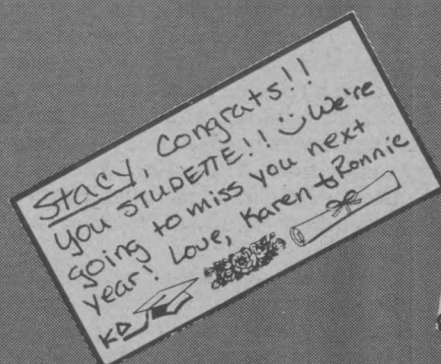 Stacy, Congrats!!
you STUDETTE!! We're
going to miss you next
year! Love, Karen & Ronnie
KD